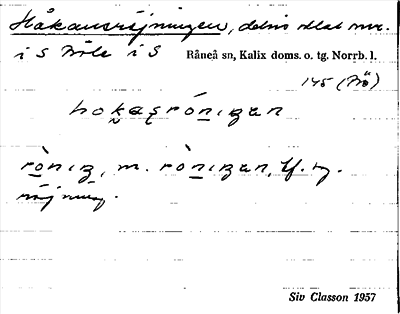 Håkansröjningen, delvis slått m.m.
i S Böle i S Råneå sn, Kalix doms. o. tg. Norrb. l.
145 (Bö)
hokasrónigan
ròniz, m. rònizan, tf. 
röjning.
Siv Classon 1957